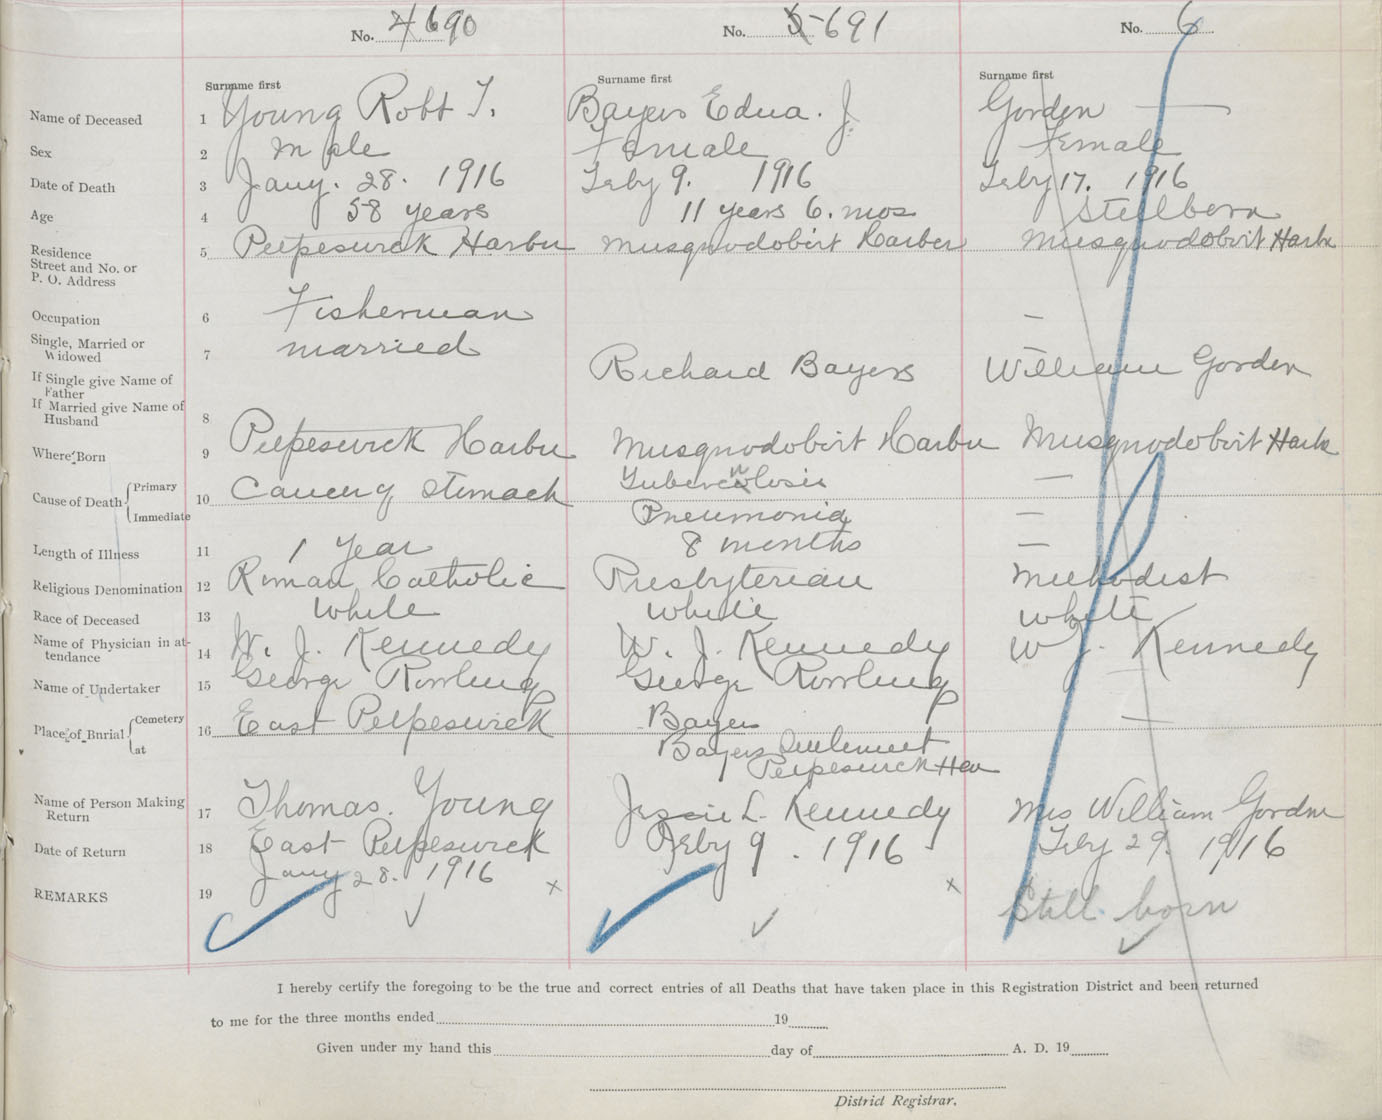 No. 4 690 No. 5 691 No. 6
Surname first Surname first Surname first
Name of Deceased 1 Young Robt T. Bayers Edna. J. Gorden —
Sex 2 Male Female Female
Date of Death 3 Jany. 28. 1916 Feby 9. 1916 Feby 17. 1916
Age 4 58 years 11 years 6. mos Stillborn
Residence
Street and No. or
P. O. Address
5 Petpeswick Harbor Musquodoboit Harbor Musquodoboit Harbr
Occupation 6 Fisherman –
Single, Married or
Widowed
7 married
If Single give Name of
Father
Richard Bayers William Gorden
If Married give Name of
Husband
8
Where Born 9 Petpeswick Harbor Musquodoboit Harbor Musquodoboit Harb
Cause of Death Primary 10 Cancer of Stomach Tuberculosis —
Immediate Pneumonia —
Length of Illness 11 1 Year 8 months —
Religious Denomination 12 Roman Catholic Presbyterian Methodist
Race of Deceased 13 White White White
Name of Physician in at-
tendance
14 W. J. Kennedy W. J. Kennedy W J. Kennedy
Name of Undertaker 15 George Rowlings George Rowlings —
Place of Burial Cemetery 16 East Petpeswick Bayers —
at Bayers Settlement
Petpeswick Har
Name of Person Making
Return
17 Thomas. Young Jessie L. Kennedy Mrs William Gordon
East Petpeswick
Date of Return 18 Jany 28. 1916 Feby 9. 1916 Feby 29. 1916
REMARKS 19 x x Still born
I hereby certify the foregoing to be the true and correct entries of all Deaths that have taken place in this Registration District and been returned
to me for the three months ended 19
Given under my hand this day of A. D. 19
District Registrar.